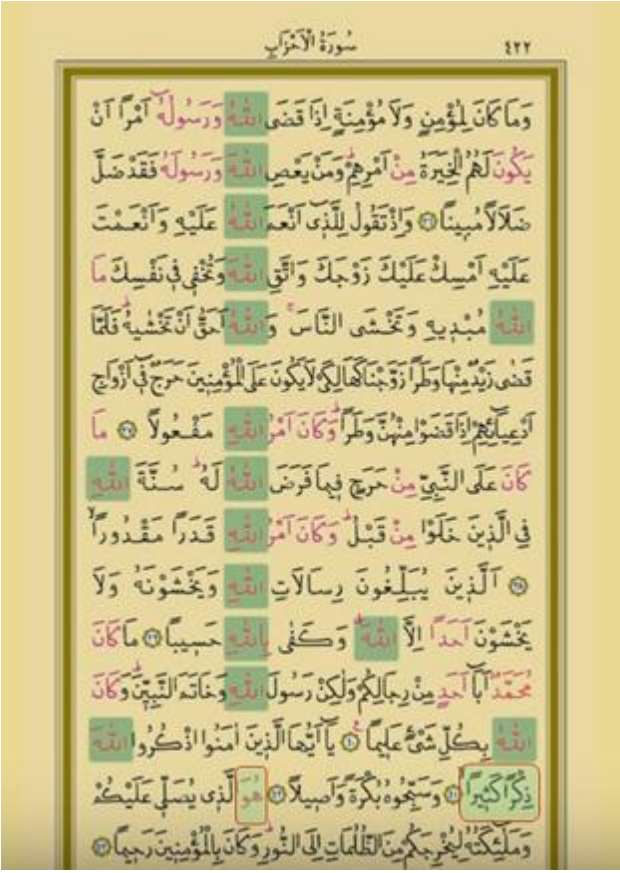 سُورَةُ الْاَحْزَابِ ٤٢٢
وَمَا كَانَ لِمُؤْمِنٍ وَلَا مُؤْمِنَةٍ اِذَا قَضَى اللّٰهُ وَرَسُولُهُٓ اَمْرًا اَنْ
يَكُونَ لَهُمُ الْخِيَرَةُ مِنْ اَمْرِهِمْۜ وَمَنْ يَعْصِ اللّٰهَ وَرَسُولَهُ فَقَدْ ضَلَّ
ضَلَالًا مُبِينًا ﴿٣٦﴾ وَاِذْ تَقُولُ لِلَّذٖٓى اَنْعَمَ اللّٰهُ عَلَيْهِ وَاَنْعَمْتَ
عَلَيْهِ اَمْسِكْ عَلَيْكَ زَوْجَكَ وَاتَّقِ اللّٰهَ وَتُخْفٖى فٖى نَفْسِكَ مَا
اللّٰهُ مُبْدٖيهِ وَتَخْشَى النَّاسَۚ وَاللّٰهُ اَحَقُّ اَنْ تَخْشٰيهُۜ فَلَمَّا
قَضٰى زَيْدٌ مِنْهَا وَطَرًا زَوَّجْنَاكَهَا لِكَىْ لَا يَكُونَ عَلَى الْمُؤْمِنٖينَ حَرَجٌ فٖٓى اَزْوَاجِ
اَدْعِيَٓائِهِمْ اِذَا قَضَوْا مِنْهُنَّ وَطَرًاۜ وَكَانَ اَمْرُ اللّٰهِ مَفْعُولًا ﴿٣٧﴾ مَا
كَانَ عَلَى النَّبِىِّ مِنْ حَرَجٍ فٖيمَا فَرَضَ اللّٰهُ لَهُۜ سُنَّةَ اللّٰهِ
فِى الَّذٖينَ خَلَوْا مِنْ قَبْلُۜ وَكَانَ اَمْرُ اللّٰهِ قَدَرًا مَقْدُورًاۙ
﴿٣٨﴾ اَلَّذٖينَ يُبَلِّغُونَ رِسَالَاتِ اللّٰهِ وَيَخْشَوْنَهُ وَلَا
يَخْشَوْنَ اَحَدًا اِلَّا اللّٰهَۜ وَكَفٰى بِاللّٰهِ حَسٖيبًا ﴿٣٩﴾ مَا كَانَ
مُحَمَّدٌ اَبَٓا اَحَدٍ مِنْ رِجَالِكُمْ وَلٰكِنْ رَسُولَ اللّٰهِ وَخَاتَمَ النَّبِيّٖنَۜ وَكَانَ
اللّٰهُ بِكُلِّ شَىْءٍ عَلٖيمًا ﴿٤٠﴾ يَٓا اَيُّهَا الَّذٖينَ اٰمَنُوا اذْكُرُوا اللّٰهَ
ذِكْرًا كَثٖيرًا ﴿٤١﴾ وَسَبِّحُوهُ بُكْرَةً وَاَصٖيلًا ﴿٤٢﴾ هُوَ الَّذٖى يُصَلّٖى عَلَيْكُمْ
وَمَلٰٓئِكَتُهُ لِيُخْرِجَكُمْ مِنَ الظُّلُمَاتِ اِلَى النُّورِۜ وَكَانَ بِالْمُؤْمِنٖينَ رَحٖيمًا ﴿٤٣﴾